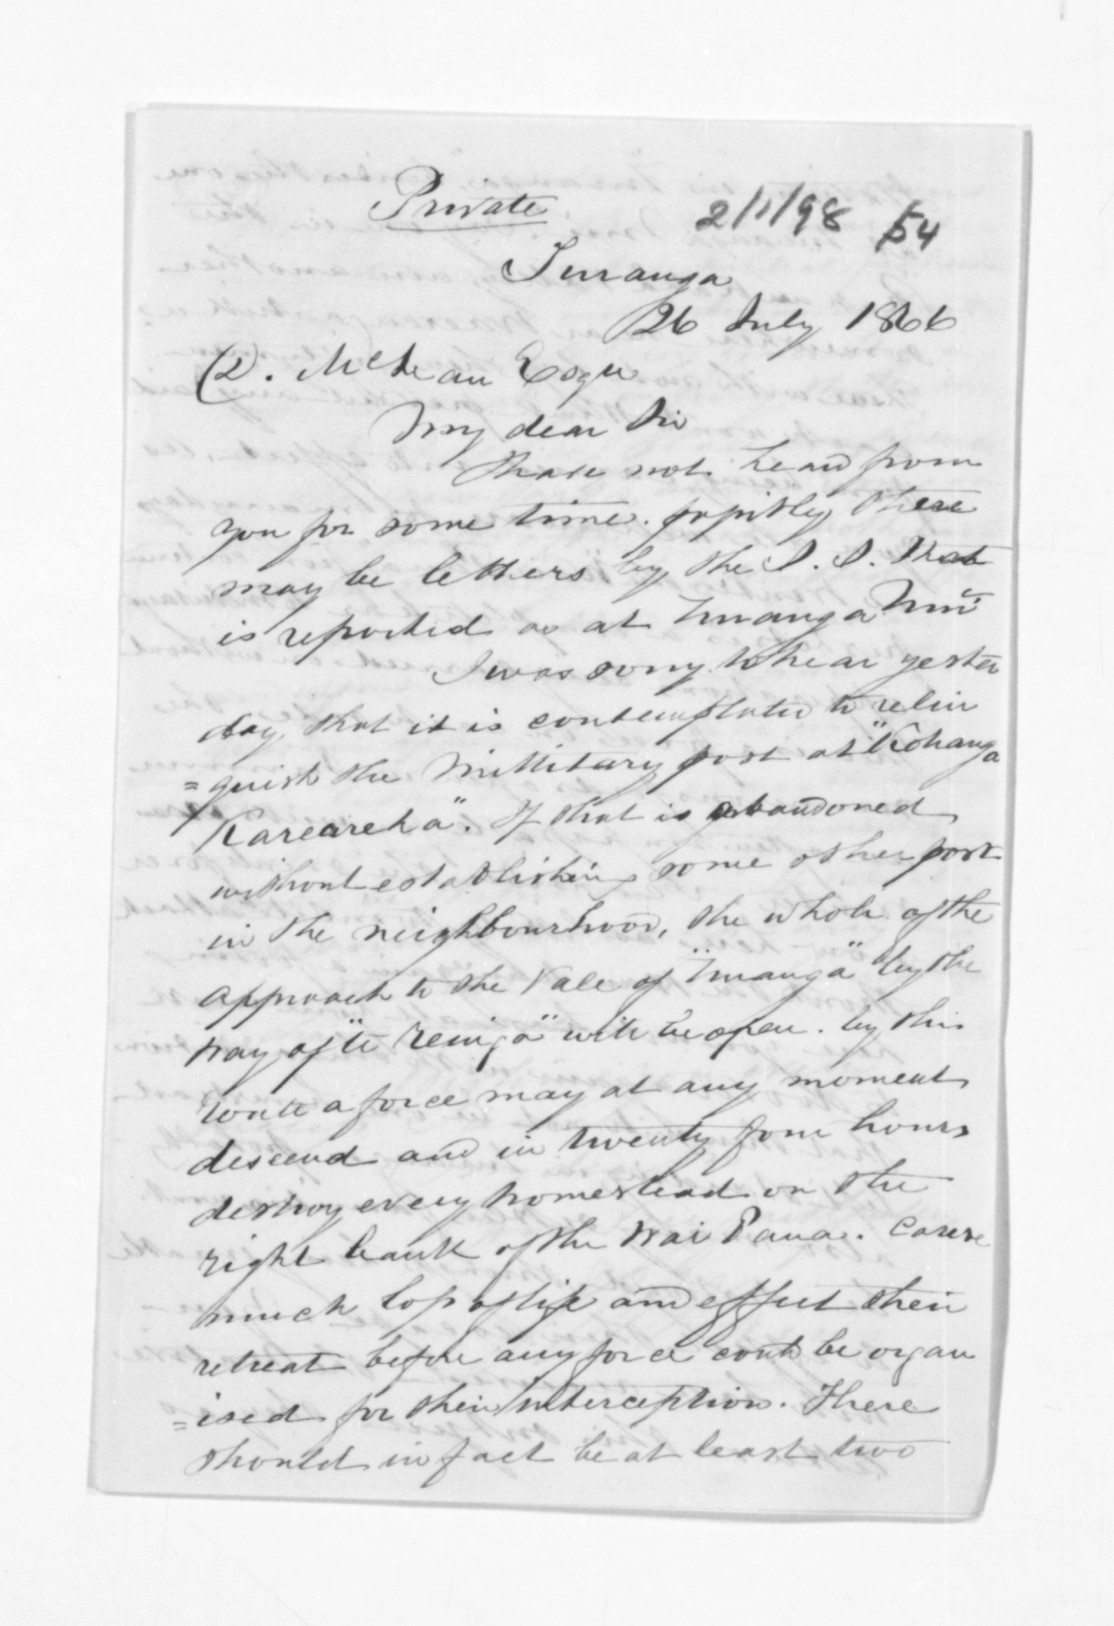 Private
2/1/98 54
Turanga
26 July 1866
D. McLean Esqre
My dear Sir
I have not heard from
you for some time. possibly there
may be letters by the S. S. that
is reported as at Turanga Nui
I was sorry to hear yester
day, that it is contemplated to relin
=quish the Millitary post at "Kohanga
Karearea". If that is abandoned
without establishing some other post
in the neighbourhood, the whole of the
approach to the Vale of "Turanga" by the
way of "te Reinga" will be open. by this
route a force may at any moment
descend and in twenty four hours
destroy every homestead on the
right bank of the Wai Paua. Cause
much loss of life and effect their
retreat before any force could be organ
=ised for their interception. There
should in fact be at least two